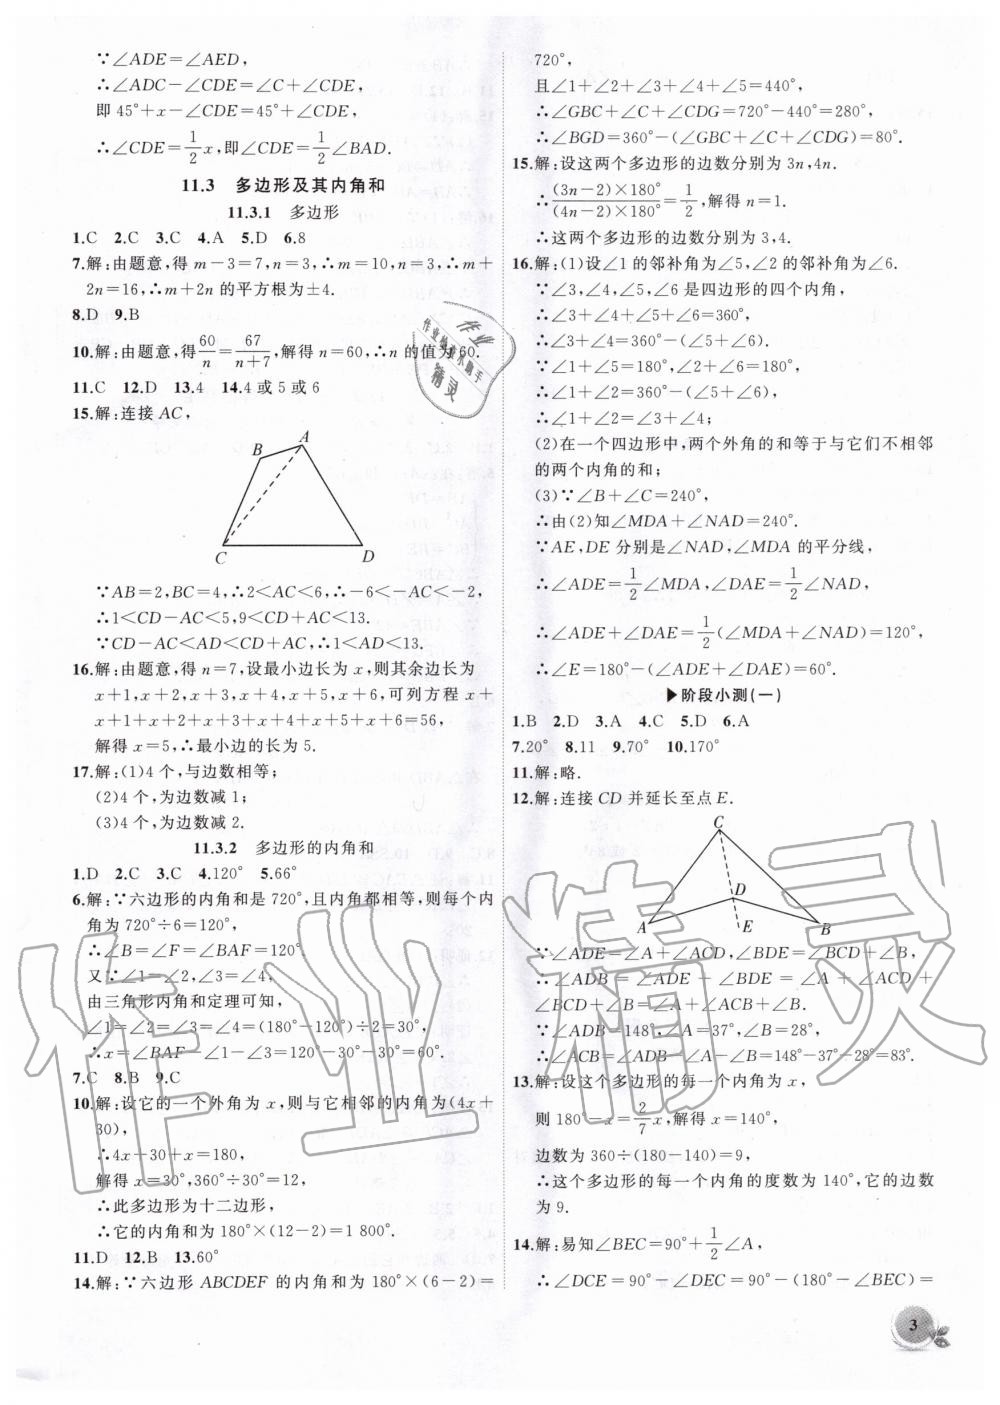 ∵∠ADE=∠AED,
∴∠ADC-∠CDE=∠C+∠CDE,
即 45°+x-∠CDE=45°+∠CDE,
∴∠CDE=1/2x,即∠CDE=1/2∠BAD.
11.3 多边形及其内角和
11.3.1 多边形
1.C 2.C 3.C 4.A 5.D 6.8
7.解:由题意,得 m-3=7,n=3,∴m=10,n=3,∴m+
2n=16,∴m+2n 的平方根为±4.
8.D 9.B
10.解:由题意,得60/n=67/(n+7),解得 n=60,∴n 的值为 60.
11.C 12.D 13.4 14.4 或 5 或 6
15.解:连接 AC,
A
B
C
D
∵AB=2,BC=4,∴2<AC<6,∴-6<-AC<-2,
∴1<CD-AC<5,9<CD+AC<13.
∵CD-AC<AD<CD+AC,∴1<AD<13.
16.解:由题意,得 n=7,设最小边长为 x,则其余边长为
x+1,x+2,x+3,x+4,x+5,x+6,可列方程 x+
x+1+x+2+x+3+x+4+x+5+x+6=56,
解得 x=5,∴最小边的长为 5.
17.解:(1)4 个,与边数相等;
(2)4 个,为边数减 1;
(3)4 个,为边数减 2.
11.3.2 多边形的内角和
1.D 2.C 3.C 4.120° 5.66°
6.解:∵六边形的内角和是 720°,且内角都相等,则每个内
角为 720°÷6=120°,
∴∠B=∠F=∠BAF=120°.
又∵∠1=∠2,∠3=∠4,
由三角形内角和定理可知,
∠1=∠2=∠3=∠4=(180°-120°)÷2=30°,
∴x=∠BAF-∠1-∠3=120°-30°-30°=60°.
7.C 8.B 9.C
10.解:设它的一个外角为 x,则与它相邻的内角为(4x+
30),
∴4x+30+x=180,
解得 x=30,360°÷30°=12,
∴此多边形为十二边形,
∴它的内角和为 180°×(12-2)=1 800°.
11.D 12.B 13.60°
14.解:∵六边形 ABCDEF 的内角和为 180°×(6-2)=
720°,
且∠1+∠2+∠3+∠4+∠5=440°,
∴∠GBC+∠C+∠CDG=720°-440°=280°,
∴∠BGD=360°-(∠GBC+∠C+∠CDG)=80°.
15.解:设这两个多边形的边数分别为 3n,4n.
∴(3n-2)×180°/(4n-2)×180°=1/2,解得 n=1.
∴这两个多边形的边数分别为 3,4.
16.解:(1)设∠1 的邻补角为∠5,∠2 的邻补角为∠6.
∵∠3,∠4,∠5,∠6 是四边形的四个内角,
∴∠3+∠4+∠5+∠6=360°,
∴∠3+∠4=360°-(∠5+∠6).
∵∠1+∠5=180°,∠2+∠6=180°,
∴∠1+∠2=360°-(∠5+∠6),
∴∠1+∠2=∠3+∠4;
(2)在一个四边形中,两个外角的和等于与它们不相邻
的两个内角的和;
(3)∵∠B+∠C=240°,
∴由(2)知∠MDA+∠NAD=240°.
∵AE,DE 分别是∠NAD,∠MDA 的平分线,
∴∠ADE=1/2∠MDA,∠DAE=1/2∠NAD,
∴∠ADE+∠DAE=1/2(∠MDA+∠NAD)=120°,
∴∠E=180°-(∠ADE+∠DAE)=60°.
▶阶段小测(一)
1.B 2.D 3.A 4.C 5.D 6.A
7.20° 8.11 9.70° 10.170°
11.解:略.
12.解:连接 CD 并延长至点 E.
C
D
A
E
B
∵∠ADE=∠A+∠ACD,∠BDE=∠BCD+∠B,
∴∠ADB=∠ADE+∠BDE=∠A+∠ACD+
∠BCD+∠B=∠A+∠ACB+∠B.
∵∠ADB=148°,∠A=37°,∠B=28°,
∴∠ACB=∠ADB-∠A-∠B=148°-37°-28°=83°.
13.解:设这个多边形的每一个内角为 x,
则 180°-x=2/7x,解得 x=140°,
边数为 360÷(180-140)=9,
∴这个多边形的每一个内角的度数为 140°,它的边数
为 9.
14.解:易知∠BEC=90°+1/2∠A,
∴∠DCE=90°-∠DEC=90°-(180°-∠BEC)=
3
作业
作业检查小助手
精灵
作业精灵